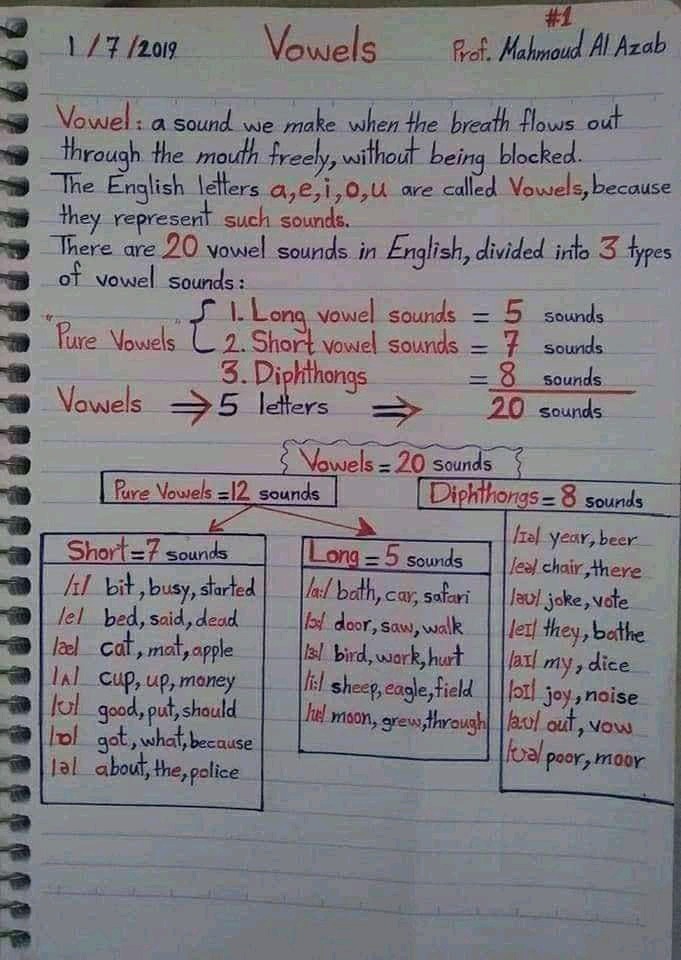 #1
1/7/2019 Vowels Prof. Mahmoud Al Azab
Vowel: a sound we make when the breath flows out
through the mouth freely, without being blocked.
The English letters a,e,i,o,u are called Vowels, because
they represent such sounds.
There are 20 vowel sounds in English, divided into 3 types
of vowel sounds:
1. Long vowel sounds = 5 sounds
"Pure Vowels" { 2. Short vowel sounds = 7 sounds
3. Diphthongs = 8 sounds
Vowels ⇒ 5 letters ⇒ 20 sounds
Vowels = 20 sounds
Pure Vowels = 12 sounds
Short = 7 sounds
/ɪ/ bit, busy, started
/e/ bed, said, dead
/æ/ cat, mat, apple
/ʌ/ cup, up, money
/ʊ/ good, put, should
/ɒ/ got, what, because
/ə/ about, the, police
Long = 5 sounds
/ɑ:/ bath, car, safari
/ɔ:/ door, saw, walk
/ɜ:/ bird, work, hurt
/i:/ sheep, eagle, field
/u:/ moon, grew, through
Diphthongs = 8 sounds
/ɪə/ year, beer
/eə/ chair, there
/əʊ/ joke, vote
/eɪ/ they, bathe
/aɪ/ my, dice
/ɔɪ/ joy, noise
/aʊ/ out, vow
/ʊə/ poor, moor